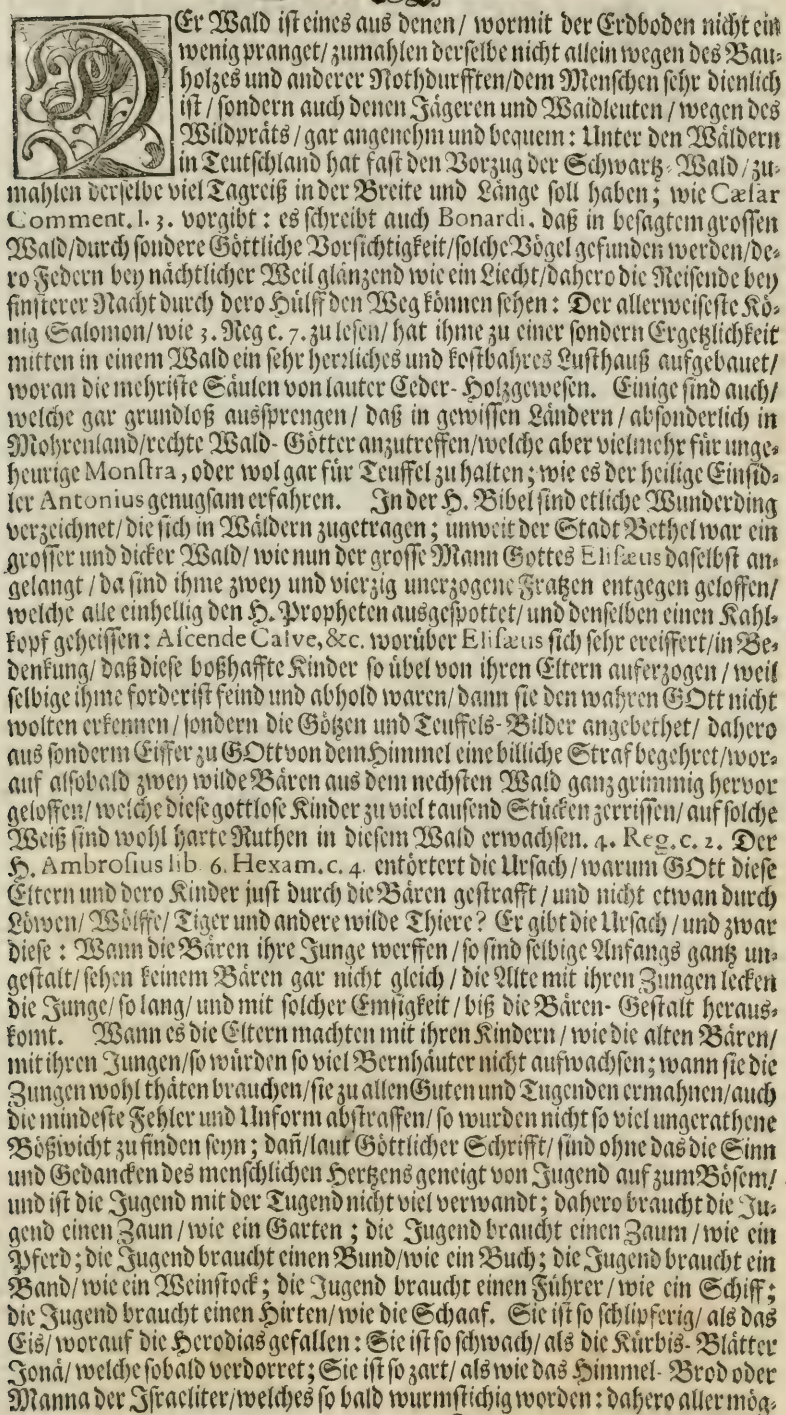 DEr Wald ist eines aus denen / wormit der Erdboden nicht ein
wenig pranget / zumahlen derselbe nicht allein wegen des Bau-
holzes und anderer Nothdurfften / dem Menschen sehr dienlich
ist / sondern auch denen Jägeren und Waidleuten / wegen des
Wildpräts / gar angenehm und bequem: Unter den Wäldern
in Teutschland hat fast den Vorzug der Schwartz-Wald / zu-
mahlen derselbe viel Tagreiß in der Breite und Länge soll haben; wie Cæsar
Comment. l. 3. vorgibt: es schreibt auch Bonardi. daß in besagtem grossen
Wald / durch sondere Göttliche Vorsichtigkeit / solche Vögel gefunden werden / de-
ro Federn bey nächtlicher Weil glänzend wie ein Liecht / dahero die Reisende bey
finsterer Nacht durch dero Hülff den Weg können sehen: Der allerweiseste Kö-
nig Salomon / wie 3. Reg c. 7. zu lesen / hat ihme zu einer sondern Ergetzlichkeit
mitten in einem Wald ein sehr herzliches und kostbahres Lusthauß aufgebauet /
woran die mehriste Säulen von lauter Ceder-Holz gewesen. Einige sind auch /
welche gar grundloß aussprengen / daß in gewissen Ländern / absonderlich in
Mohrenland / rechte Wald-Götter anzutreffen / welche aber vielmehr für unge-
heurige Monstra, oder wol gar für Teuffel zu halten; wie es der heilige Einsid-
ler Antonius genugsam erfahren. In der H. Bibel sind etliche Wunderding
verzeichnet / die sich in Wäldern zugetragen; unweit der Stadt Bethel war ein
grosser und dicker Wald / wie nun der grosse Mann Gottes Elisæus daselbst an-
gelangt / da sind ihme zwey und vierzig unerzogene Fratzen entgegen geloffen /
welche alle einhellig den H. Propheten ausgespottet / und denselben einen Kahl-
kopf geheissen: Ascende Calve, &c. worüber Elisæus sich sehr ereiffert / in Be-
denkung / daß diese boßhaffte Kinder so übel von ihren Eltern auferzogen / weil
selbige ihme forderist feind und abhold waren / dann sie den wahren GOtt nicht
wolten erkennen / sondern die Götzen und Teuffels-Bilder angebethet / dahero
aus sonderm Eiffer zu GOtt von dem Himmel eine billiche Straf begehret / wor-
auf alsobald zwey wilde Bären aus dem nechsten Wald ganz grimmig hervor
geloffen / welche diese gottlose Kinder zu viel tausend Stücken zerrissen / auf solche
Weiß sind wohl harte Ruthen in diesem Wald erwachsen. 4. Reg. c. 2. Der
H. Ambrosius lib 6. Hexam. c. 4. entörtert die Ursach / warum GOtt diese
Eltern und dero Kinder just durch die Bären gestrafft / und nicht etwan durch
Löwen / Wölffe / Tiger und andere wilde Thiere? Er gibt die Ursach / und zwar
diese: Wann die Bären ihre Junge werffen / so sind selbige Anfangs gantz un-
gestalt / sehen keinem Bären gar nicht gleich / die Alte mit ihren Zungen lecken
die Junge / so lang / und mit solcher Emsigkeit / biß die Bären-Gestalt heraus-
komt. Wann es die Eltern machten mit ihren Kindern / wie die alten Bären /
mit ihren Jungen / so würden so viel Bernhäuter nicht aufwachsen; wann sie die
Zungen wohl thäten brauchen / sie zu allen Guten und Tugenden ermahnen / auch
die mindeste Fehler und Unform abstraffen / so wurden nicht so viel ungerathene
Bößwicht zu finden seyn; dañ / laut Göttlicher Schrifft / sind ohne das die Sinn
und Gedancken des menschlichen Hertzens geneigt von Jugend auf zum Bösem /
und ist die Jugend mit der Tugend nicht viel verwandt; dahero braucht die Ju-
gend einen Zaun / wie ein Garten; die Jugend braucht einen Zaum / wie ein
Pferd; die Jugend braucht einen Bund / wie ein Buch; die Jugend braucht ein
Band / wie ein Weinstock; die Jugend braucht einen Führer / wie ein Schiff;
die Jugend braucht einen Hirten / wie die Schaaf. Sie ist so schlipferig / als das
Eis / worauf die Herodias gefallen: Sie ist so schwach / als die Kürbis-Blätter
Jonä / welche sobald verdorret; Sie ist so zart / als wie das Himmel-Brod oder
Manna der Israeliter / welches so bald wurmstichig worden: dahero aller mög-